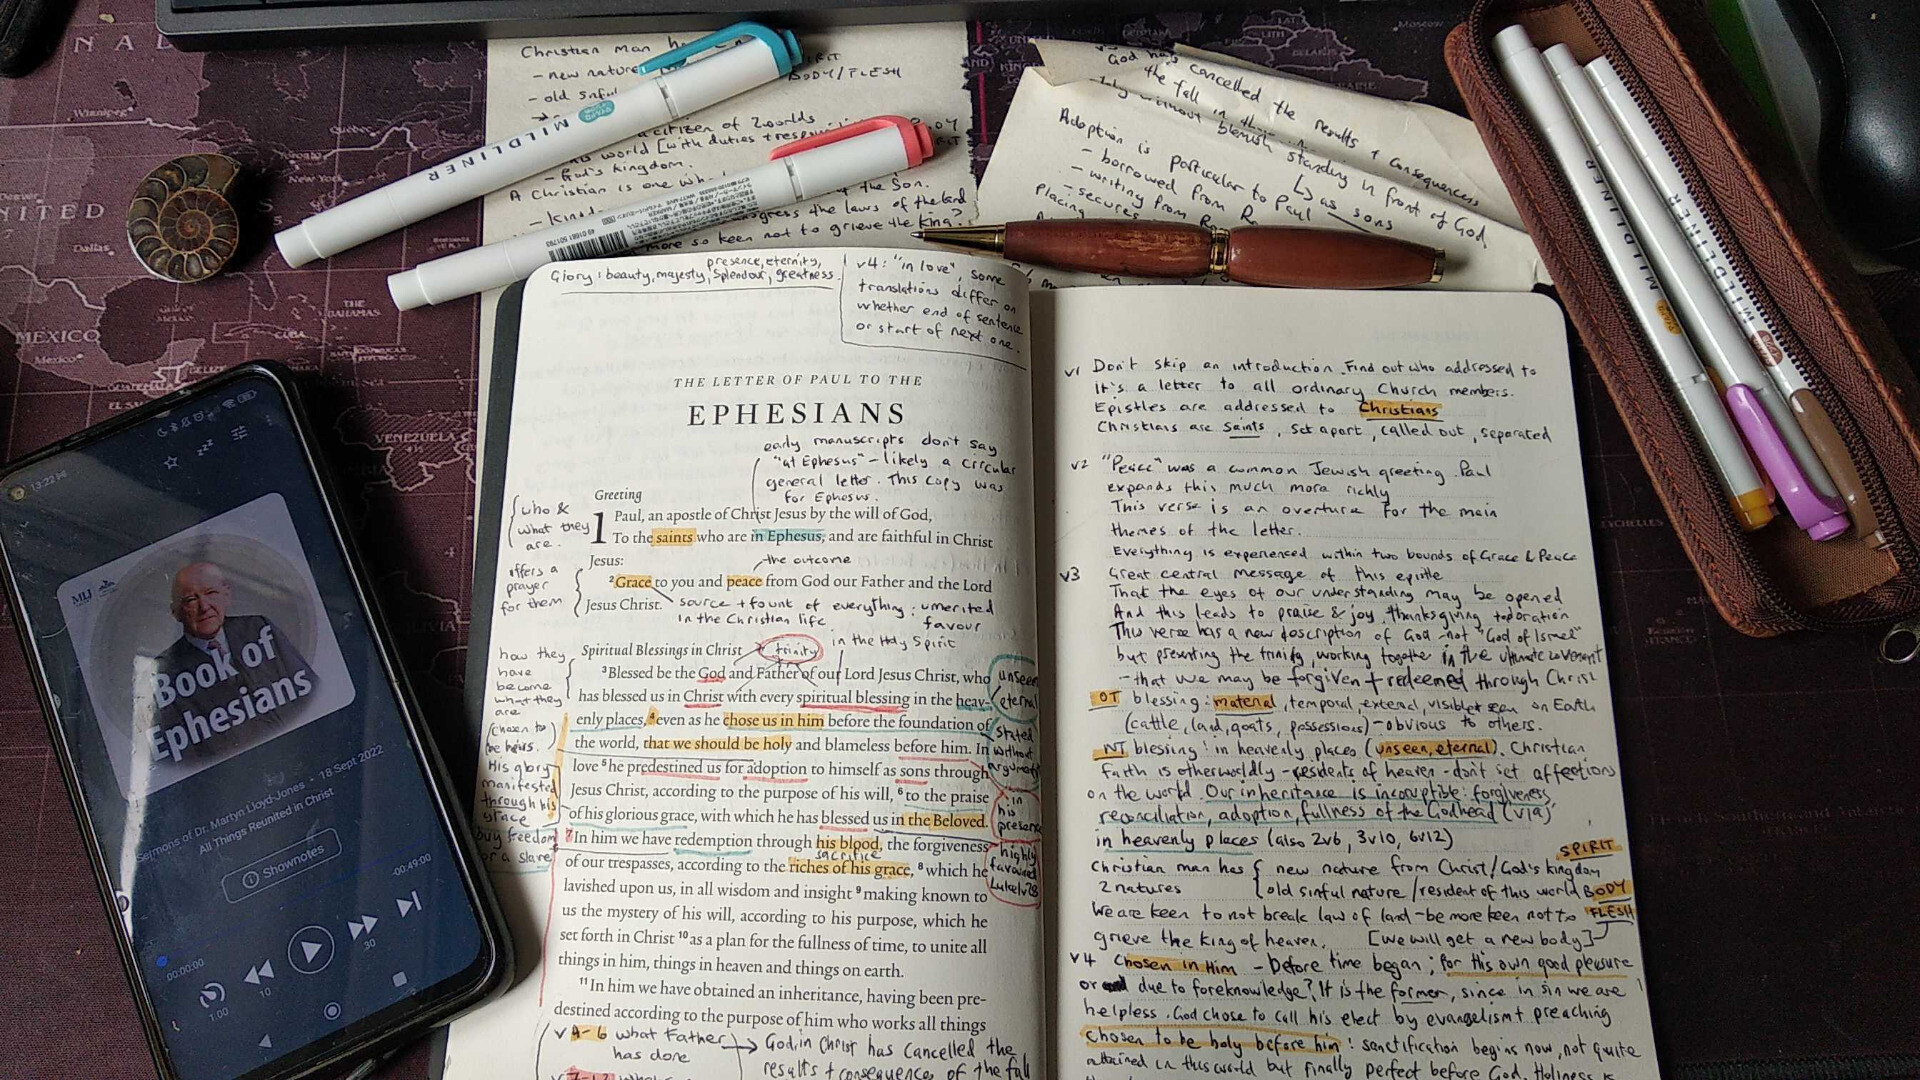 Christian man
- new nature
BODY/FLESH
- old sinful
citizen of 2 worlds
this world [with duties + resp
- God's kingdom.
A Christian is one wh
of the Son.
the laws of the land
more so keen not to grieve the king?
MILDLINER
God has cancelled the results + consequences
the fall in
standing in front of God
Adoption is particular to Paul
↳ as sons
- borrowed from R
- writing from Ro
- secures
Placing
MILDLINER
MILDLINER
NEW YORK
Winnipeg
Dallas
MEXICO
Mexico
THE BAHAMAS
CUBA
VENEZUELA
13:22
MLJ
Book of
Ephesians
Sermons of Dr. Martyn Lloyd-Jones • 18 Sept 2022
All Things Reunited in Christ
Shownotes
00:00:00
-00:49:00
1.00
10
30
presence, eternity,
Glory: beauty, majesty, splendour, greatness.
v4: "in love", some
translations differ on
whether end of sentence
or start of next one.
THE LETTER OF PAUL TO THE
EPHESIANS
early manuscripts don't say
"at Ephesus" - likely a circular
general letter. This copy was
for Ephesus.
Greeting
who &
what they
are.
1 Paul, an apostle of Christ Jesus by the will of God,
To the saints who are in Ephesus, and are faithful in Christ
Jesus:
the outcome
offers a
prayer
for them
2 Grace to you and peace from God our Father and the Lord
Jesus Christ.
source + fount of everything: umerited
in the Christian life favour
in the Holy Spirit
Spiritual Blessings in Christ
trinity
how they
have
become
what they
are
(chosen to
be heirs.)
3 Blessed be the God and Father of our Lord Jesus Christ, who
has blessed us in Christ with every spiritual blessing in the heav-
enly places, 4 even as he chose us in him before the foundation of
the world, that we should be holy and blameless before him. In
love 5 he predestined us for adoption to himself as sons through
Jesus Christ, according to the purpose of his will, 6 to the praise
of his glorious grace, with which he has blessed us in the Beloved.
7 In him we have redemption through his blood, the forgiveness
sacrifice
of our trespasses, according to the riches of his grace, 8 which he
lavished upon us, in all wisdom and insight 9 making known to
us the mystery of his will, according to his purpose, which he
set forth in Christ 10 as a plan for the fullness of time, to unite all
things in him, things in heaven and things on earth.
11 In him we have obtained an inheritance, having been pre-
destined according to the purpose of him who works all things
unseen
eternal
stated
without
argument
in
his
presence
highly
favoured
Luke1v28
His glory
manifested
through his
grace
buy freedom
for a slave
v 4-6 what Father → God, in Christ has cancelled the
has done results + consequences of the fall
v1 Don't skip an introduction. Find out who addressed to
It's a letter to all ordinary Church members.
Epistles are addressed to Christians
Christians are saints, set apart, called out, separated
v2 "Peace" was a common Jewish greeting. Paul
expands this much more richly
This verse is an overture for the main
themes of the letter.
Everything is experienced within two bounds of Grace & Peace
v3 Great central message of this epistle
That the eyes of our understanding may be opened
And this leads to praise & joy, thanksgiving + adoration
This verse has a new description of God - not "God of Israel"
but presenting the trinity, working together in the ultimate covenant
- that we may be forgiven + redeemed through Christ
OT blessing: material, temporal, external, visible + seen on Earth
(cattle, land, goats, possessions) - obvious to others.
NT blessing: in heavenly places (unseen, eternal). Christian
faith is otherworldly - residents of heaven - don't set affections
on the world. Our inheritance is incorruptible: forgiveness,
reconciliation, adoption, fullness of the Godhead (via)
in heavenly places (also 2v6, 3v10, 6v12)
Christian man has { new nature from Christ/God's kingdom SPIRIT
2 natures { old sinful nature/resident of this world BODY
We are keen to not break law of land - be more keen not to FLESH
grieve the king of heaven. [we will get a new body]
v4 Chosen in Him - before time began; for His own good pleasure
or due to foreknowledge? It is the former, since in sin we are
helpless. God chose to call his elect by evangelism + preaching
chosen to be holy before him: sanctification begins now, not quite
attained in this world but finally perfect before God. Holiness is